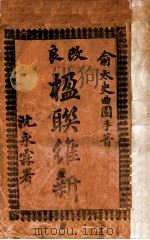 俞太史曲園手著
改良
楹聯維新
沈泉霖署